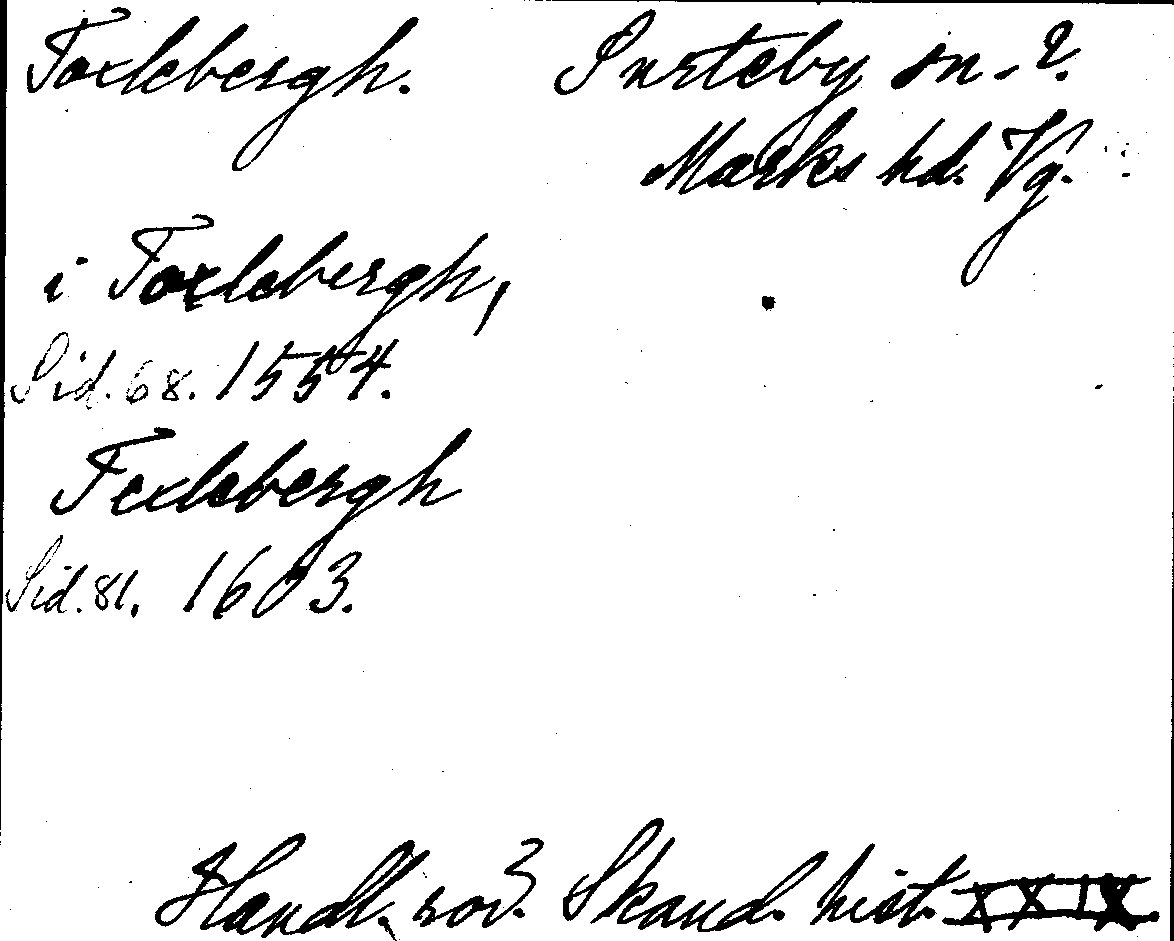 Toxlebergh. Surteby sn. ?.
Marks hd. Vg.
i Toxlebergh,
Sid. 68. 1554.
Texlebergh
Sid. 81. 1603.
Handl. rör. Skand. hist. XXIX.